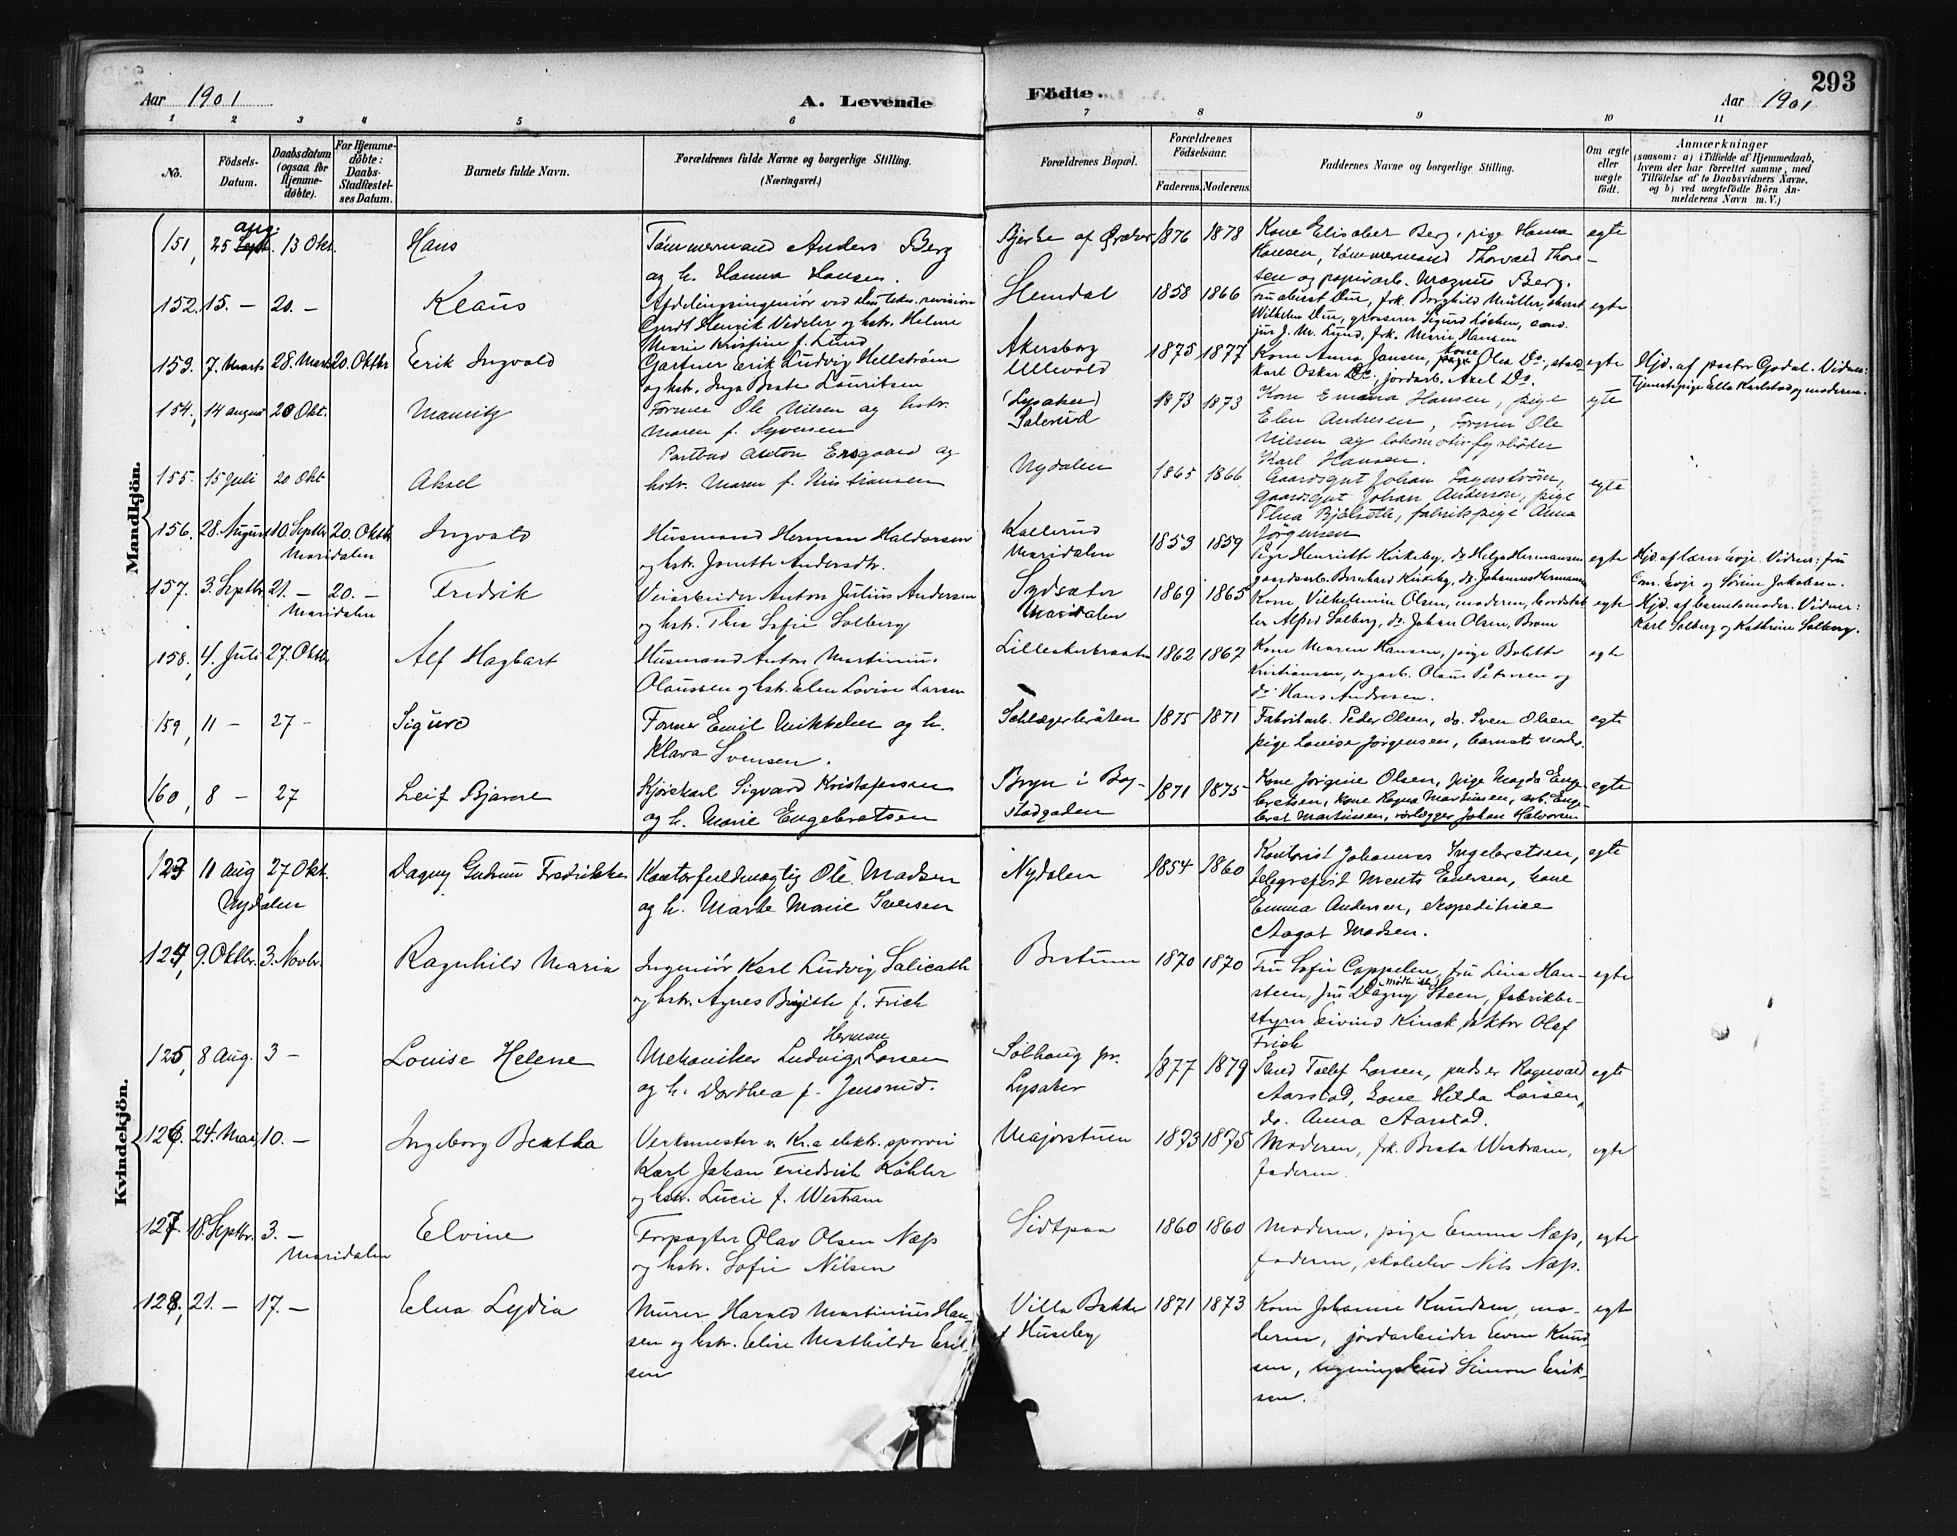 293
Aar 1901
A. Levende
Födte.
Aar 1901
1 2 3 4 5 6 7 8 9 10 11
No.
Födsels-Datum.
Daabsdatum (ogsaa for Hjemme-döbte).
For Hjemme-döbte: Daabs-Stadfæstel-ses Datum.
Barnets fulde Navn.
Forældrenes fulde Navne og borgerlige Stilling.
(Næringsvei.)
Forældrenes Bopæl.
Forældrenes Födselsaar.
Faderens. Moderens.
Faddernes Navne og borgerlige Stilling.
Om ægte eller uægte födt.
Anmærkninger
(saasom: a) i Tilfælde af Hjemmedaab,
hvem der har forrettet samme, med
Tilföielse af to Daabsvidners Navne.
og b) ved uægtefödte Börn An-
melderens Navn m. V.)
Mandkjön.
151, 25 Sept. aug. 13 Okt. Hans
Tømmermand Anders Berg
og h. Hanna Hansen.
Bjerke af 1876 1878
Kone Elisabet Berg, pige Hanna
Hansen, tømmermand Thorvald Thore-
sen og papirarb. Magnus Berg.
egte
152. 15. – 20. – Klaus
Afdelingsingeniør ved den tekn. revision
Gerdt Henrik Vedeler og hstr. Helene
Marie Kristine f. Lund
Hemdal 1858 1866
Due, frk. Borghild Müller,
Wilhelm Due, grosserer Sigurd Løchen, cand.
jur J. M. Lund, frk. Marie Hansen
egte
153. 7. Marts 28. Marts 20. Oktbr Erik Ingvald
Gartner Erik Ludvig Hellstrøm
og hstr. Inga Beate Lauritsen
Akersborg
Ullevold
1875 1877
Kone Anna Jansen, kone Olea Do.,
Karl Oskar Do. jordarb. Axel Do.
egte
Hjd. af pastor Gjødal. Vidner:
Tjenestepige Ella Karlstad og moderen.
154, 14 august 20 Okt. Mauritz
Former Ole Nilsen og hstr.
Maren f. Syversen
(Lysaker)
1873 1873
Kone Emma Hansen, pige
Elen Andresen, Former Ole
Nilsen og lokomotivfyrbøder
Karl Hansen.
egte
155. 15 Juli 20 Okt. Aksel
Postbud Anton Ersgaard og
hstr. Maren f. Kristiansen
Nydalen 1865 1866
Gaardsgut Johan Fagerstrøm,
gaardsgut Johan Anderson, pige
Thea Bjølseth, fabrikpige Anna
Jørgensen
egte
156. 28. August 10. Septbr 20. Oktbr Ingvald
Maridalen
Husmand Herman Haldorsen
og hstr. Jonette Andersdtr.
Kallerud
Maridalen
1853 1859
Pige Henriette Kirkeby, do Helga Hermansen
gaardsarb. Bernhard Kirkeby, do. Johannes Hermansen
egte
Hjd. af lærer Evje. Vidner: fru
Evje og Sørine Jakobsen.
157. 3. Septbr. 21. – 20. – Fredrik
Maridalen
Veiarbeider Anton Julius Andersen
og hstr. Thea Sofie Solberg
Sydsæter
Maridalen
1869 1865
Kone Vilhelmine Olsen, moderen,
Alfred Solberg, do. Johan Olsen,
egte
Hjd. af barnets moder. Vidner:
Karl Solberg og Kathrine Solberg.
158, 4. Juli 27. Oktbr Alf Hagbart
Husmand Anton Martinius
Olaussen og hstr. Elen Lovise Larsen
1862 1867
Kone Maren Hansen, pige Bolette
Kristiansen, dagarb. Olaus Petersen og
do Hans Andresen.
egte
159, 11 – 27 – Sigurd
Former Emil Mikkelsen og h.
Klara Svensen.
Schlægerbråten 1875 1871
Fabrikarb. Peder Olsen, do. Sven Olsen
pige Louise Jørgensen, barnets moder.
egte
160, 8 – 27 Leif Bjarne
Kjørekarl Sigvard Kristofersen
og h. Marie Engebretsen
Bryn i Bog-
stadgaden
1871 1875
Kone Jørgine Olsen, pige Magda Enge-
bretsen, kone Ragna Martinsen, arb. Enge-
bret Martinsen, rørlægger Johan Halvorsen
egte
Kvindekjön.
123 11 Aug 27 Okt. Dagny Gudrun Fredrikke
Nydalen
Kontorfuldmægtig Ole Madsen
og h. Marte Marie Iversen
Nydalen 1854 1860
Kontorist Johannes Ingebretsen,
telegrafist Ments Enersen, kone
Emma Andersen, ekspeditrice
Aagot Madsen.
egte
124, 9. Oktbr. 3. Novbr. Ragnhild Maria
Ingeniør Karl Ludvig Salicath
og hstr. Agnes Birgitte f. Frich
Bestum 1870 1870
Fru Sofie Cappelen, fru Lina Han-
steen, fru Dagny Steen, fabrikbe-
styrer Eivind Kinck, doktor Olaf
Frich
egte
125, 8 Aug. 3 – Louise Helene
Mekaniker Ludvig Herman Larsen
og h. Dorthea f. Jensrud.
Solhaug pr.
Lysaker
1877 1879
Smed Tollef Larsen, pudser Ragnvald
Aarstad, kone Hilda Larsen,
do. Anna Aarstad.
egte
126. 24. Mai 10. – Ingeborg Beatha
Verksmester v. Kr.a elektr. sporvei
Karl Johan Friedrich Köhler
og hstr. Lucie f. Westram
Majorstuen 1873 1875
Moderen, frk. Beata Westram,
faderen.
egte
127. 18. Septbr. 3. – Elvine
Maridalen
Forpagter Olav Olsen Næs
og hstr. Sofie Nilsen
1860 1860
Moderen, pige Emma Næs,
faderen, skoleelev Nils Næs.
egte
128, 21. – 17. – Elna Lydia
Murer Harald Martinius Han-
sen og hstr. Elise Mathilde Erik-
sen
Villa Bakke
f Huseby
1871 1873
Kone Johanne Knudsen, mo-
deren, jordarbeider Even Knud-
sen, bygningsbud Simon Erik-
sen.
egte